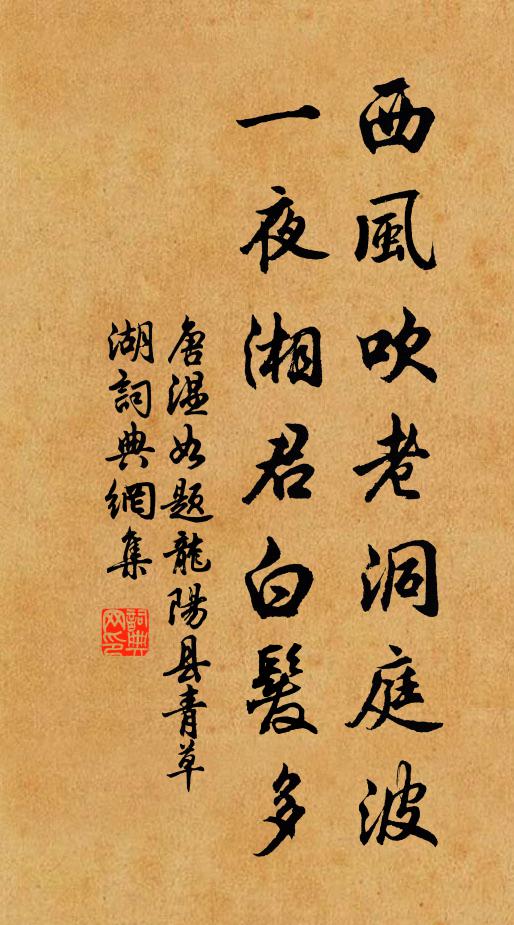 西風吹老洞庭波
一夜湘君白髮多
唐温如題龍陽县青草
湖詞典網集
詞典网印